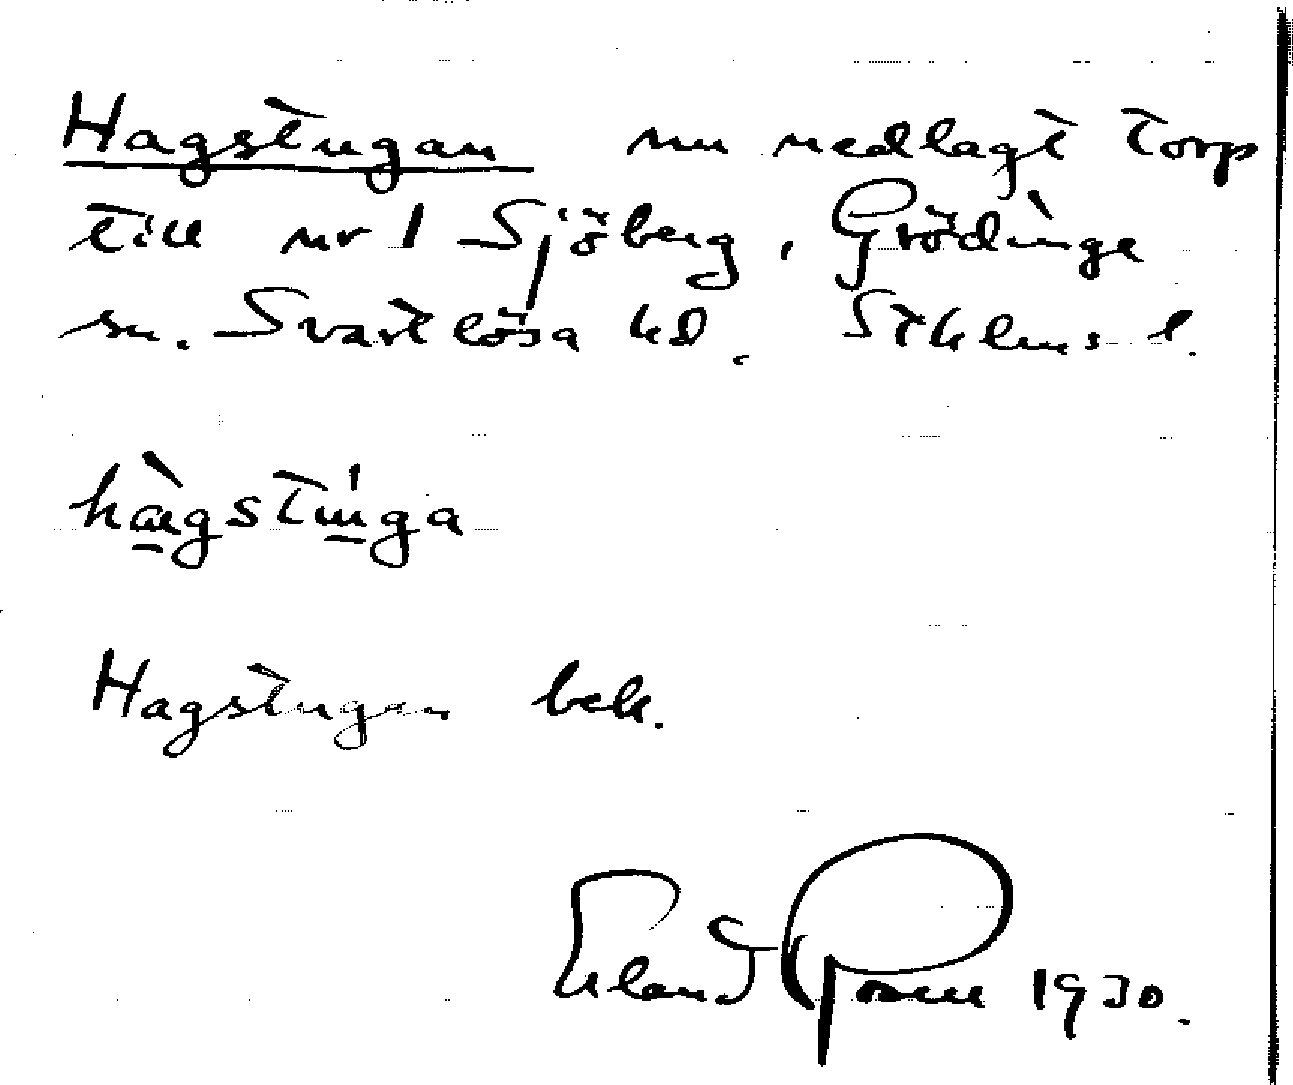 Hagstugan nu nedlagt torp
till nr 1 Sjöberg, Grödinge
sn. Svartlösa hd. Sthlms l.
Hagstugan bek.
Erland Rosell 1930.